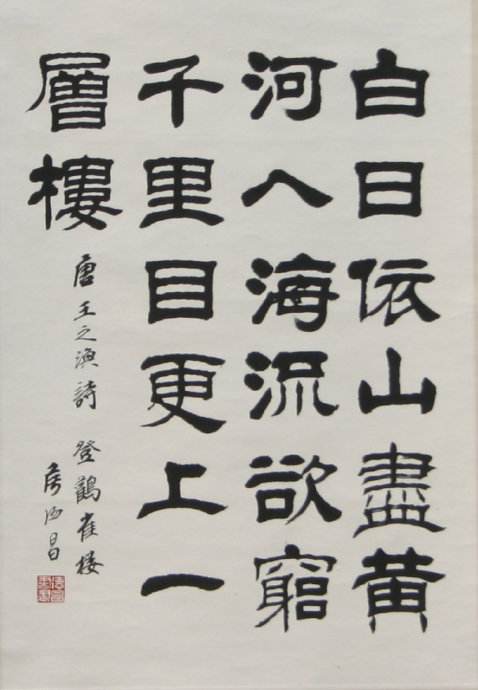 白日依山盡黃
河入海流欲窮
千里目更上一
層樓
唐王之涣詩 登鸛雀楼